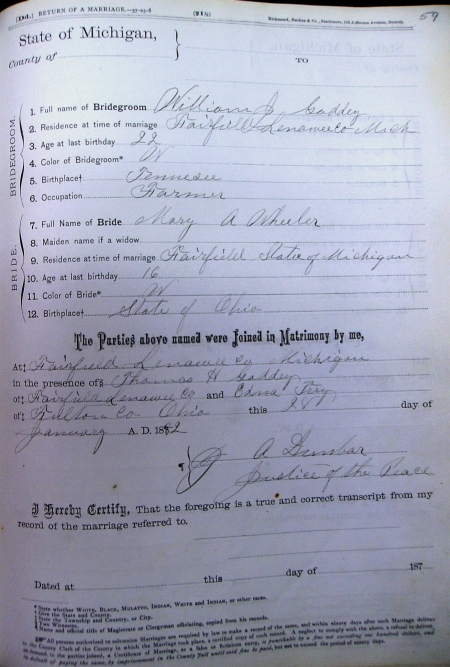 (Dd.) RETURN OF A MARRIAGE.
59
State of Michigan,
County of
TO
BRIDEGROOM.
1. Full name of Bridegroom William J. Gaddey
2. Residence at time of marriage Fairfield Lenawee Co Mich
3. Age at last birthday 22
4. Color of Bridegroom* W
5. Birthplace† Tennesee
6. Occupation Farmer
BRIDE.
7. Full Name of Bride Mary A Wheeler
8. Maiden name if a widow
9. Residence at time of marriage Fairfield State of Michigan
10. Age at last birthday 16
11. Color of Bride* W
12. Birthplace† State of Ohio
The Parties above named were Joined in Matrimony by me,
At‡ Fairfield Lenawee Co Michigan
in the presence of§ Thomas H Gaddey
of‡ Fairfield Lenawee Co and Edna
of‡ Fulton Co Ohio this 28 day of
January A. D. 1882
A Dunbar
Justice of the Peace
I Hereby Certify, That the foregoing is a true and correct transcript from my
record of the marriage referred to.
Dated at this day of 187
* State whether WHITE, BLACK, MULATTO, INDIAN, WHITE and INDIAN, or other races.
† Give the State and County.
‡ State the Township and County, or City.
§ Two Witnesses.
Name and official title of Magistrate or Clergyman officiating, copied from his records.